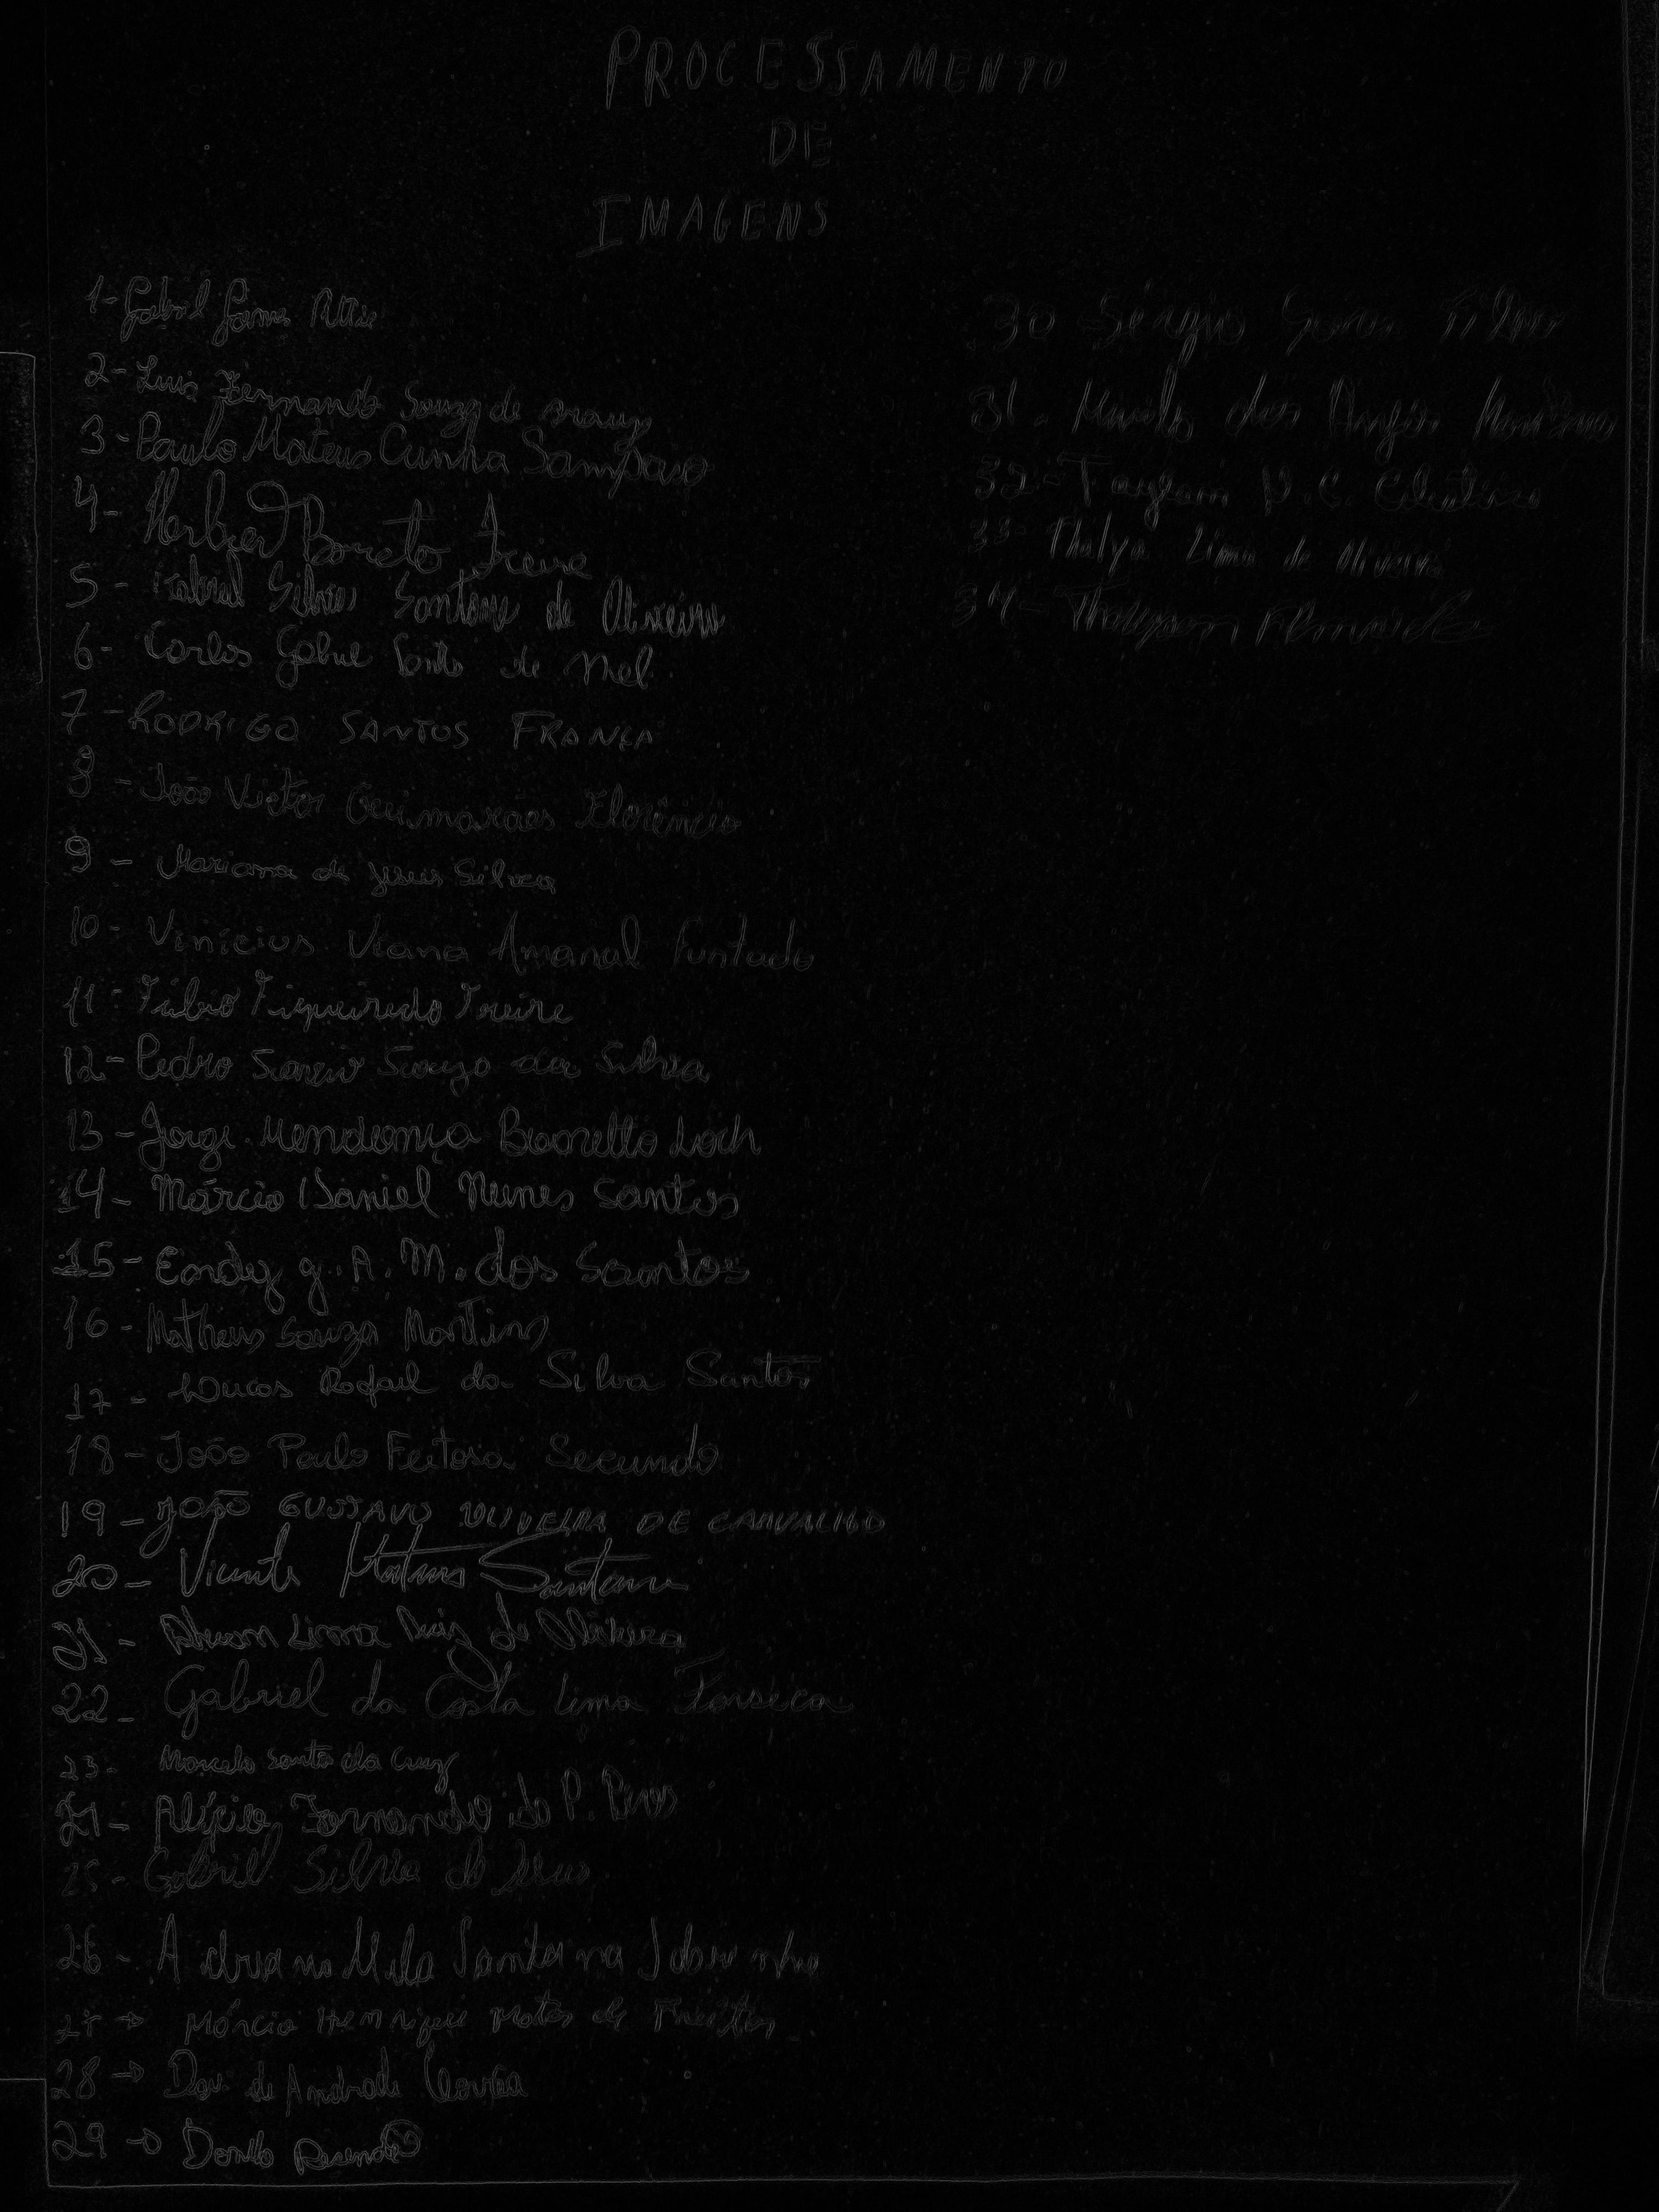 PROCESSAMENTO
DE
IMAGENS
1- Gabriel Gomes
2- Luis Fernando Souza de Araujo
3- Paulo Mateus Cunha Sampaio
4- Herbert Barreto Freire
5- Gabriel Silvio Santana de Oliveira
6- Carlos Gabriel de Mel
7- RODRIGO SANTOS FRANÇA
8- João Victor Guimarães Florêncio
9- Mariana de Jesus Silva
10- Vinicius Viana Amaral Furtado
11- Fábio Figueiredo Freire
12- Pedro Souza da Silva
13- Jorge Mendonça Barretto
14- Márcio Daniel Nunes Santos
15- g. A. M. dos Santos
16- Matheus Souza Martins
17- Lucas Rafael da Silva Santos
18- João Paulo Feitosa Secundo
19- JOÃO GUSTAVO OLIVEIRA DE CARVALHO
20- Vicente Mateus Santana
21- Lima Luiz de Oliveira
22- Gabriel da Costa Lima Fonseca
23- Marcelo Santos da Cruz
24- Fernando de P.
25- Gabriel Silvia de Jesus
26- Adriano Melo Santana Sobrinho
27 → Márcio Henrique Matos de Freitas
28 → Davi de Andrade
29 → Danilo Resende
30 Sérgio
31- Murilo dos Anjos
32-
33- Thalya Lima de Oliveira
34- Thalyson Almeida